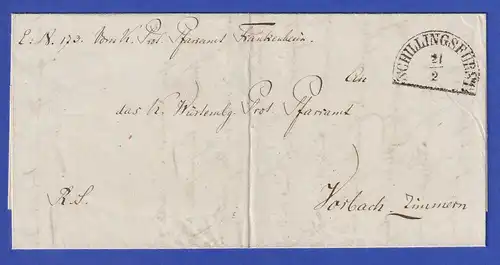 E: N. 173. Vom K. Prot. Pfarramt Frankenheim.
SCHILLINGSFÜRST
21
2
An
das K. Würtembg Prot. Pfarramt
R. S.
Vorbach-Zimmern